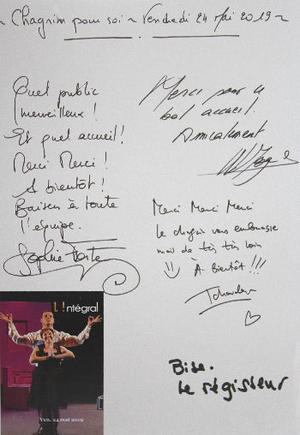 ~ Chagrin pour soi ~ Vendredi 24 Mai 2019 ~
Quel public
merveilleux !
Et quel accueil !
Merci Merci !
A bientôt !
Baisers à toute
l'équipe.
Sophie Forte
Merci pour ce
bel accueil.
Amicalement
Merci Merci Merci
Le chagrin vous embrasse
mais de très très loin
À Bientôt !!!
Tchavdar
L'Intégral
Ven. 24 mai 2019
Bise.
Le régisseur